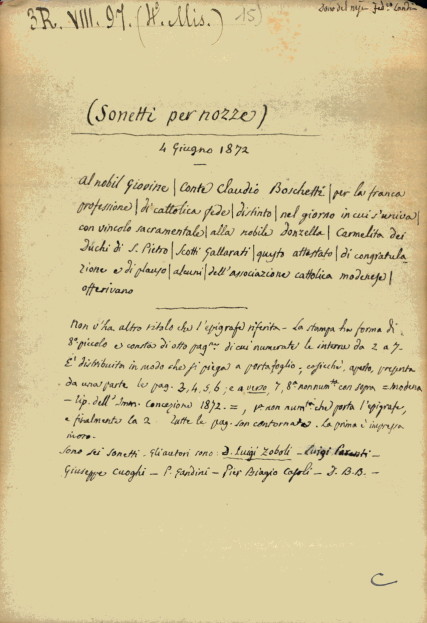 3R. VIII. 97. (4°. Mis.) 15)
Dono del
(Sonetti per nozze)
4 Giugno 1872
Al nobil Giovine | Conte Claudio Boschetti | per la franca
professione | di cattolica fede | distinto | nel giorno in cui s'univa |
con vincolo sacramentale | alla nobile donzella | Carmelita dei
Duchi di S. Pietro | Scotti Gallarati | questo attestato | di congratula-
zione e di plauso | alcuni | dell'associazione cattolica modenese |
offerivano
Non v'ha altro titolo che l'epigrafe riferita - La stampa ha forma di
8° piccolo e consta di otto pag.ne di cui numerate le interne da 2 a 7 -
E' distribuita in modo che si piega a portafoglio, cosicchè, aperto, presenta
da una parte le pag. 3, 4, 5, 6; e a verso, 7, 8a non num.ta con sopra = Modena
- tip. dell'Imm. Concezione 1872. =, 1a non num.ta che porta l'epigrafe,
e finalmente la 2. Tutte le pag. son contornate. La prima è impressa
in oro.
Sono sei sonetti. Gli autori sono: D. Luigi Zoboli - Luigi Parenti -
Giuseppe Cuoghi - P. Gandini - Pier Biagio Casoli - J. B. B. -
C